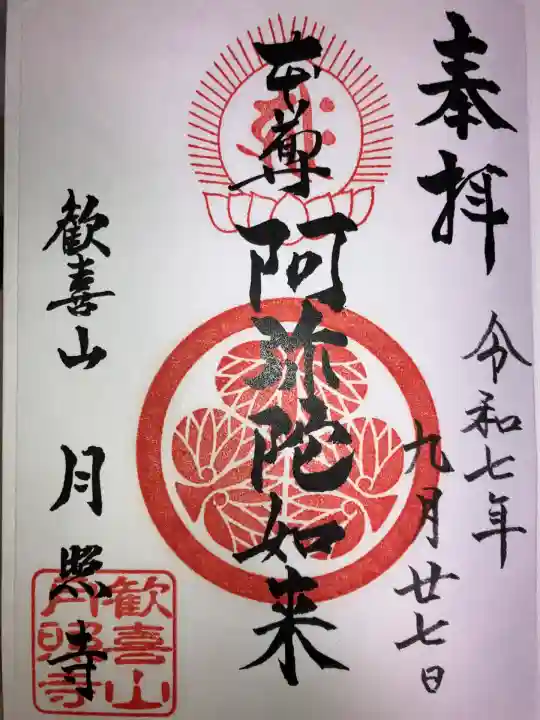 奉拝
令和七年
九月廿七日
本尊 阿弥陀如来
歓喜山 月照寺
歡喜山
月照寺